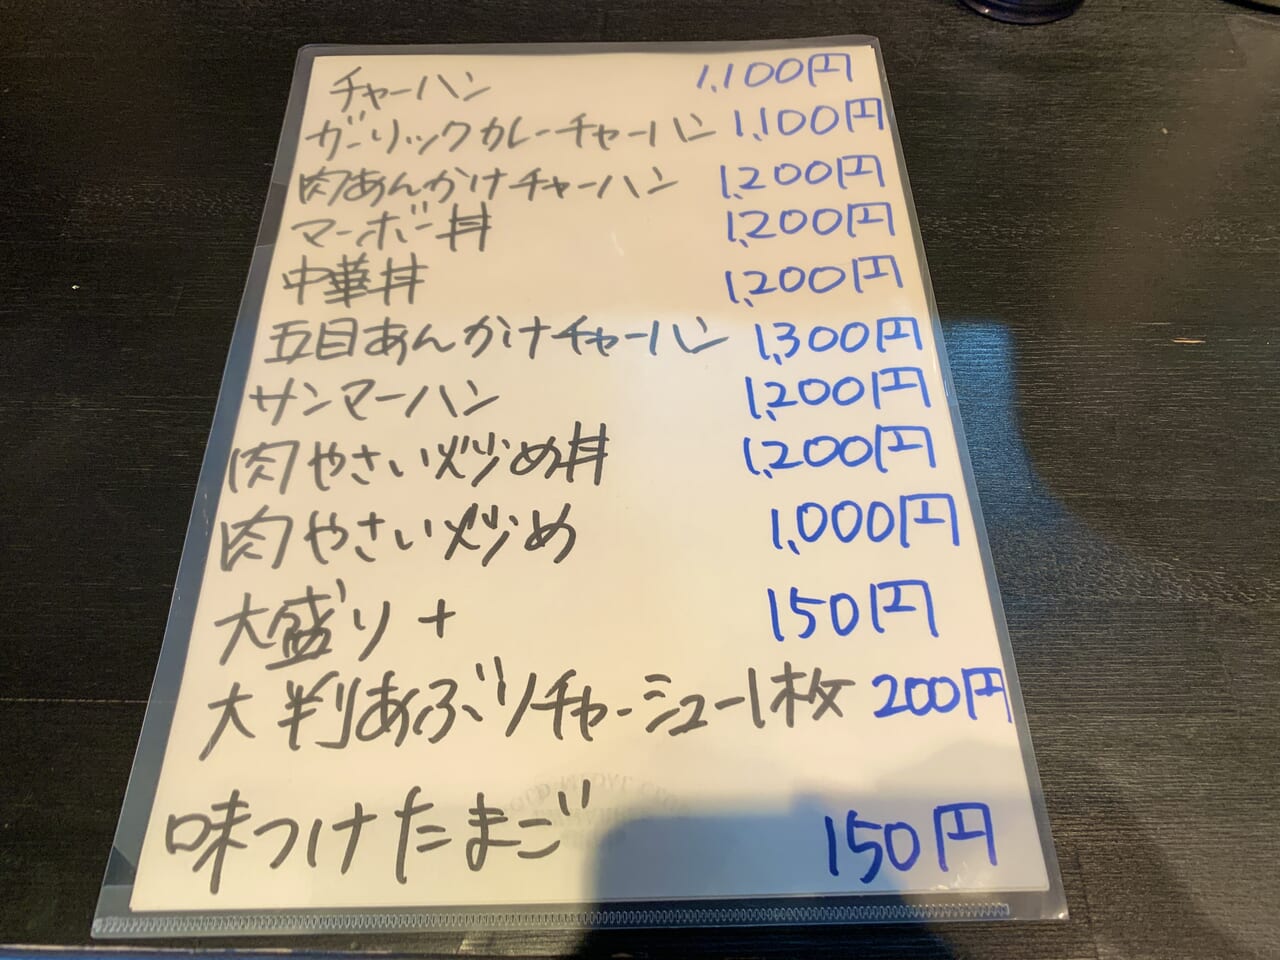 チャーハン 1,100円
ガーリックカレーチャーハン 1,100円
肉あんかけチャーハン 1,200円
マーボー丼 1,200円
中華丼 1,200円
五目あんかけチャーハン 1,300円
サンマーハン 1,200円
肉やさい炒め丼 1,200円
肉やさい炒め 1,000円
大盛り+ 150円
大判あぶりチャーシュー1枚 200円
味つけたまご 150円